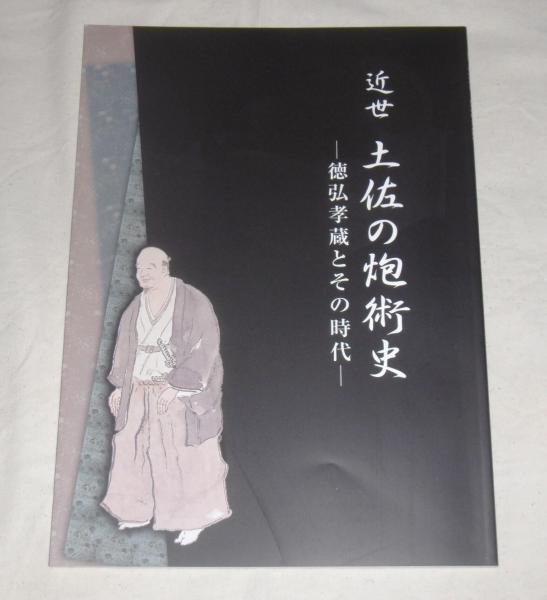 近世 土佐の炮術史
―徳弘孝蔵とその時代―